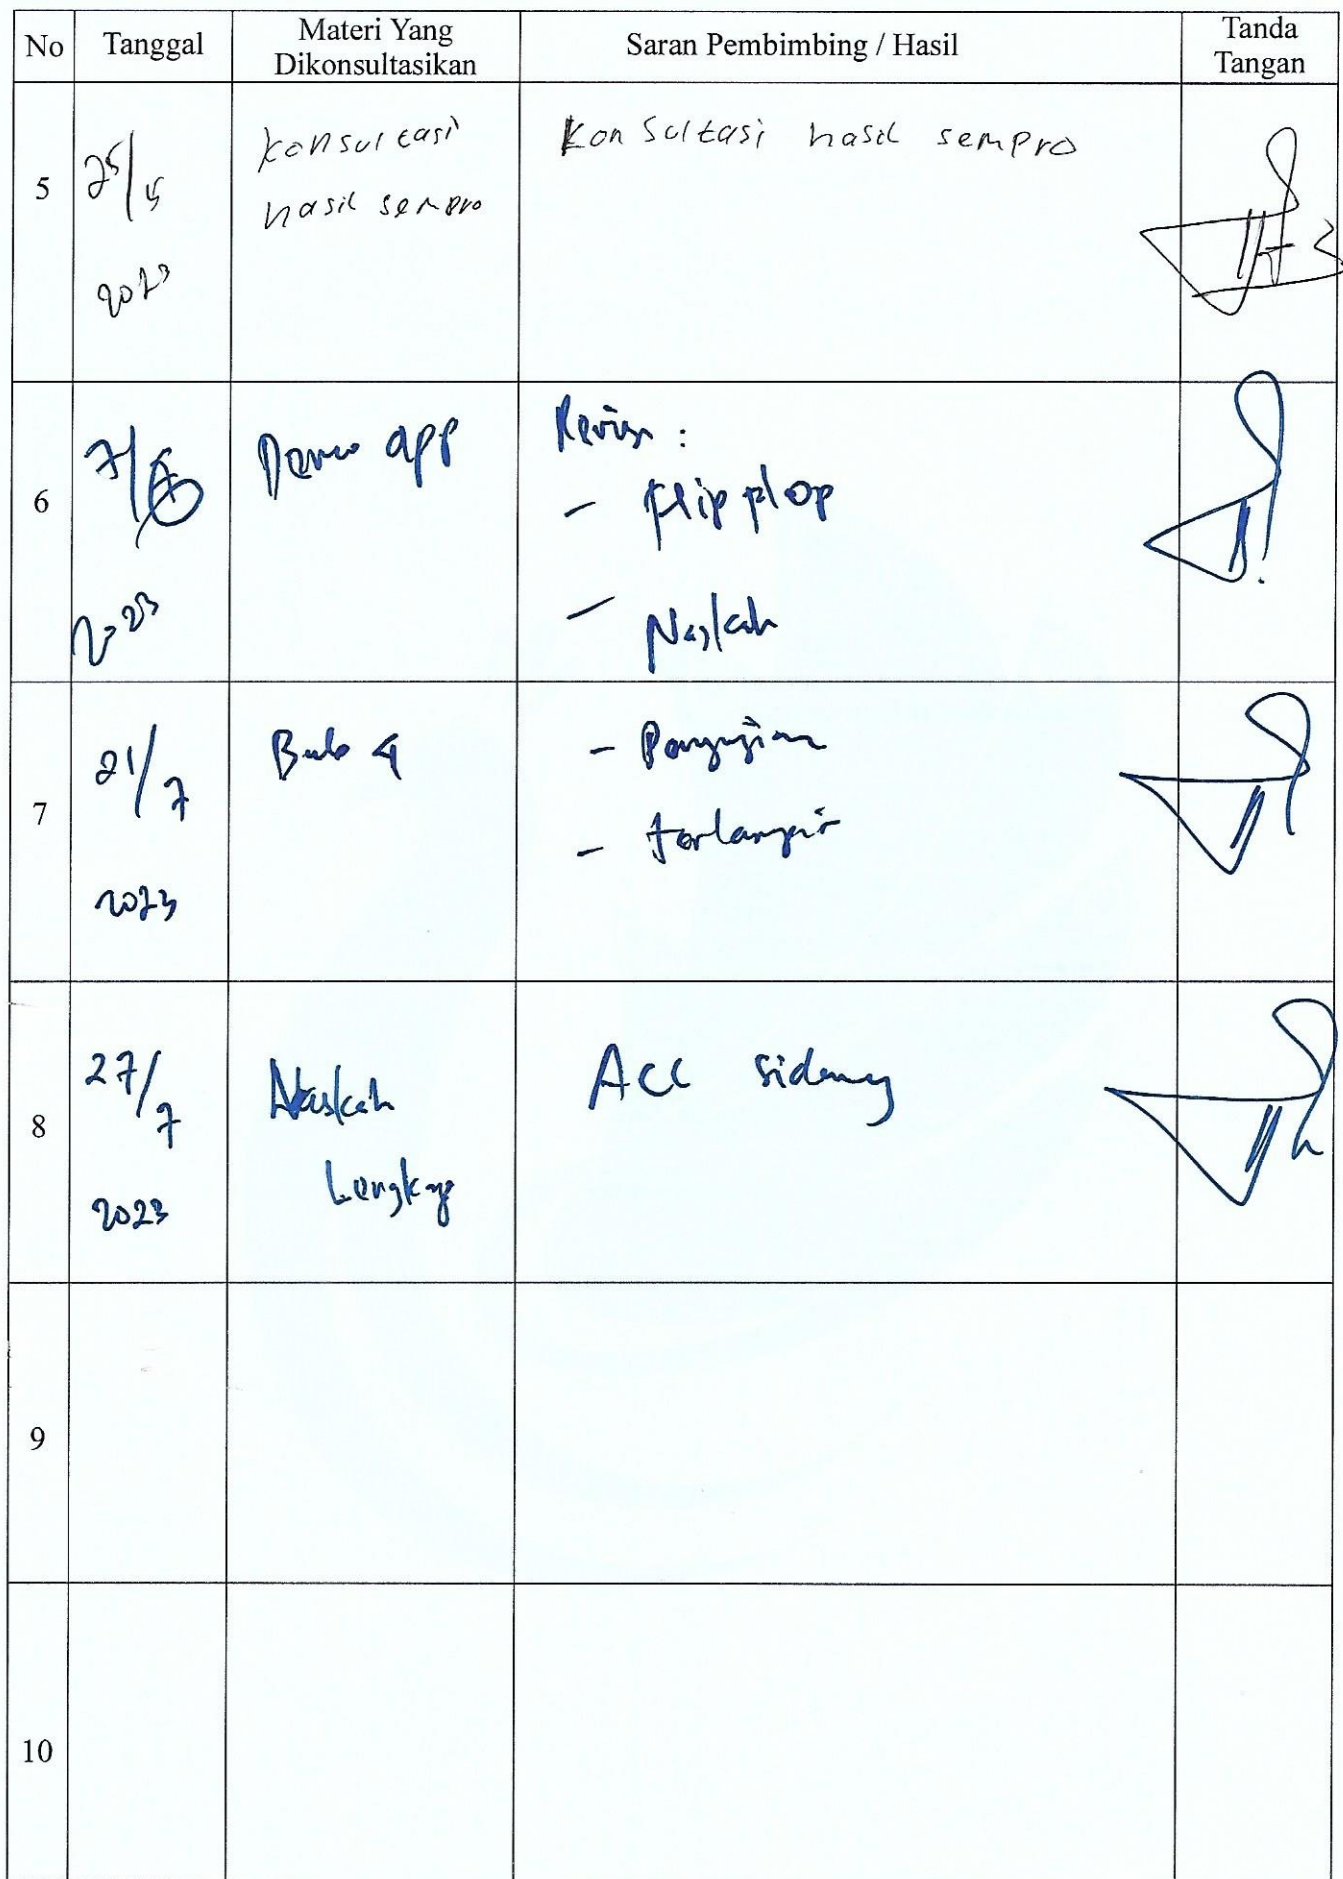 No Tanggal Materi Yang Dikonsultasikan Saran Pembimbing / Hasil Tanda Tangan
5 25/5 2023
konsultasi
hasil sempro
Konsultasi hasil sempro
6 7/6 2023
Demo app
Revisi :
- Flip plop
- Naskah
7 21/7 2023
Bab 4
- Pengujian
- terlampir
8 27/7 2023
Naskah
Lengkap
ACC sidang
9
10